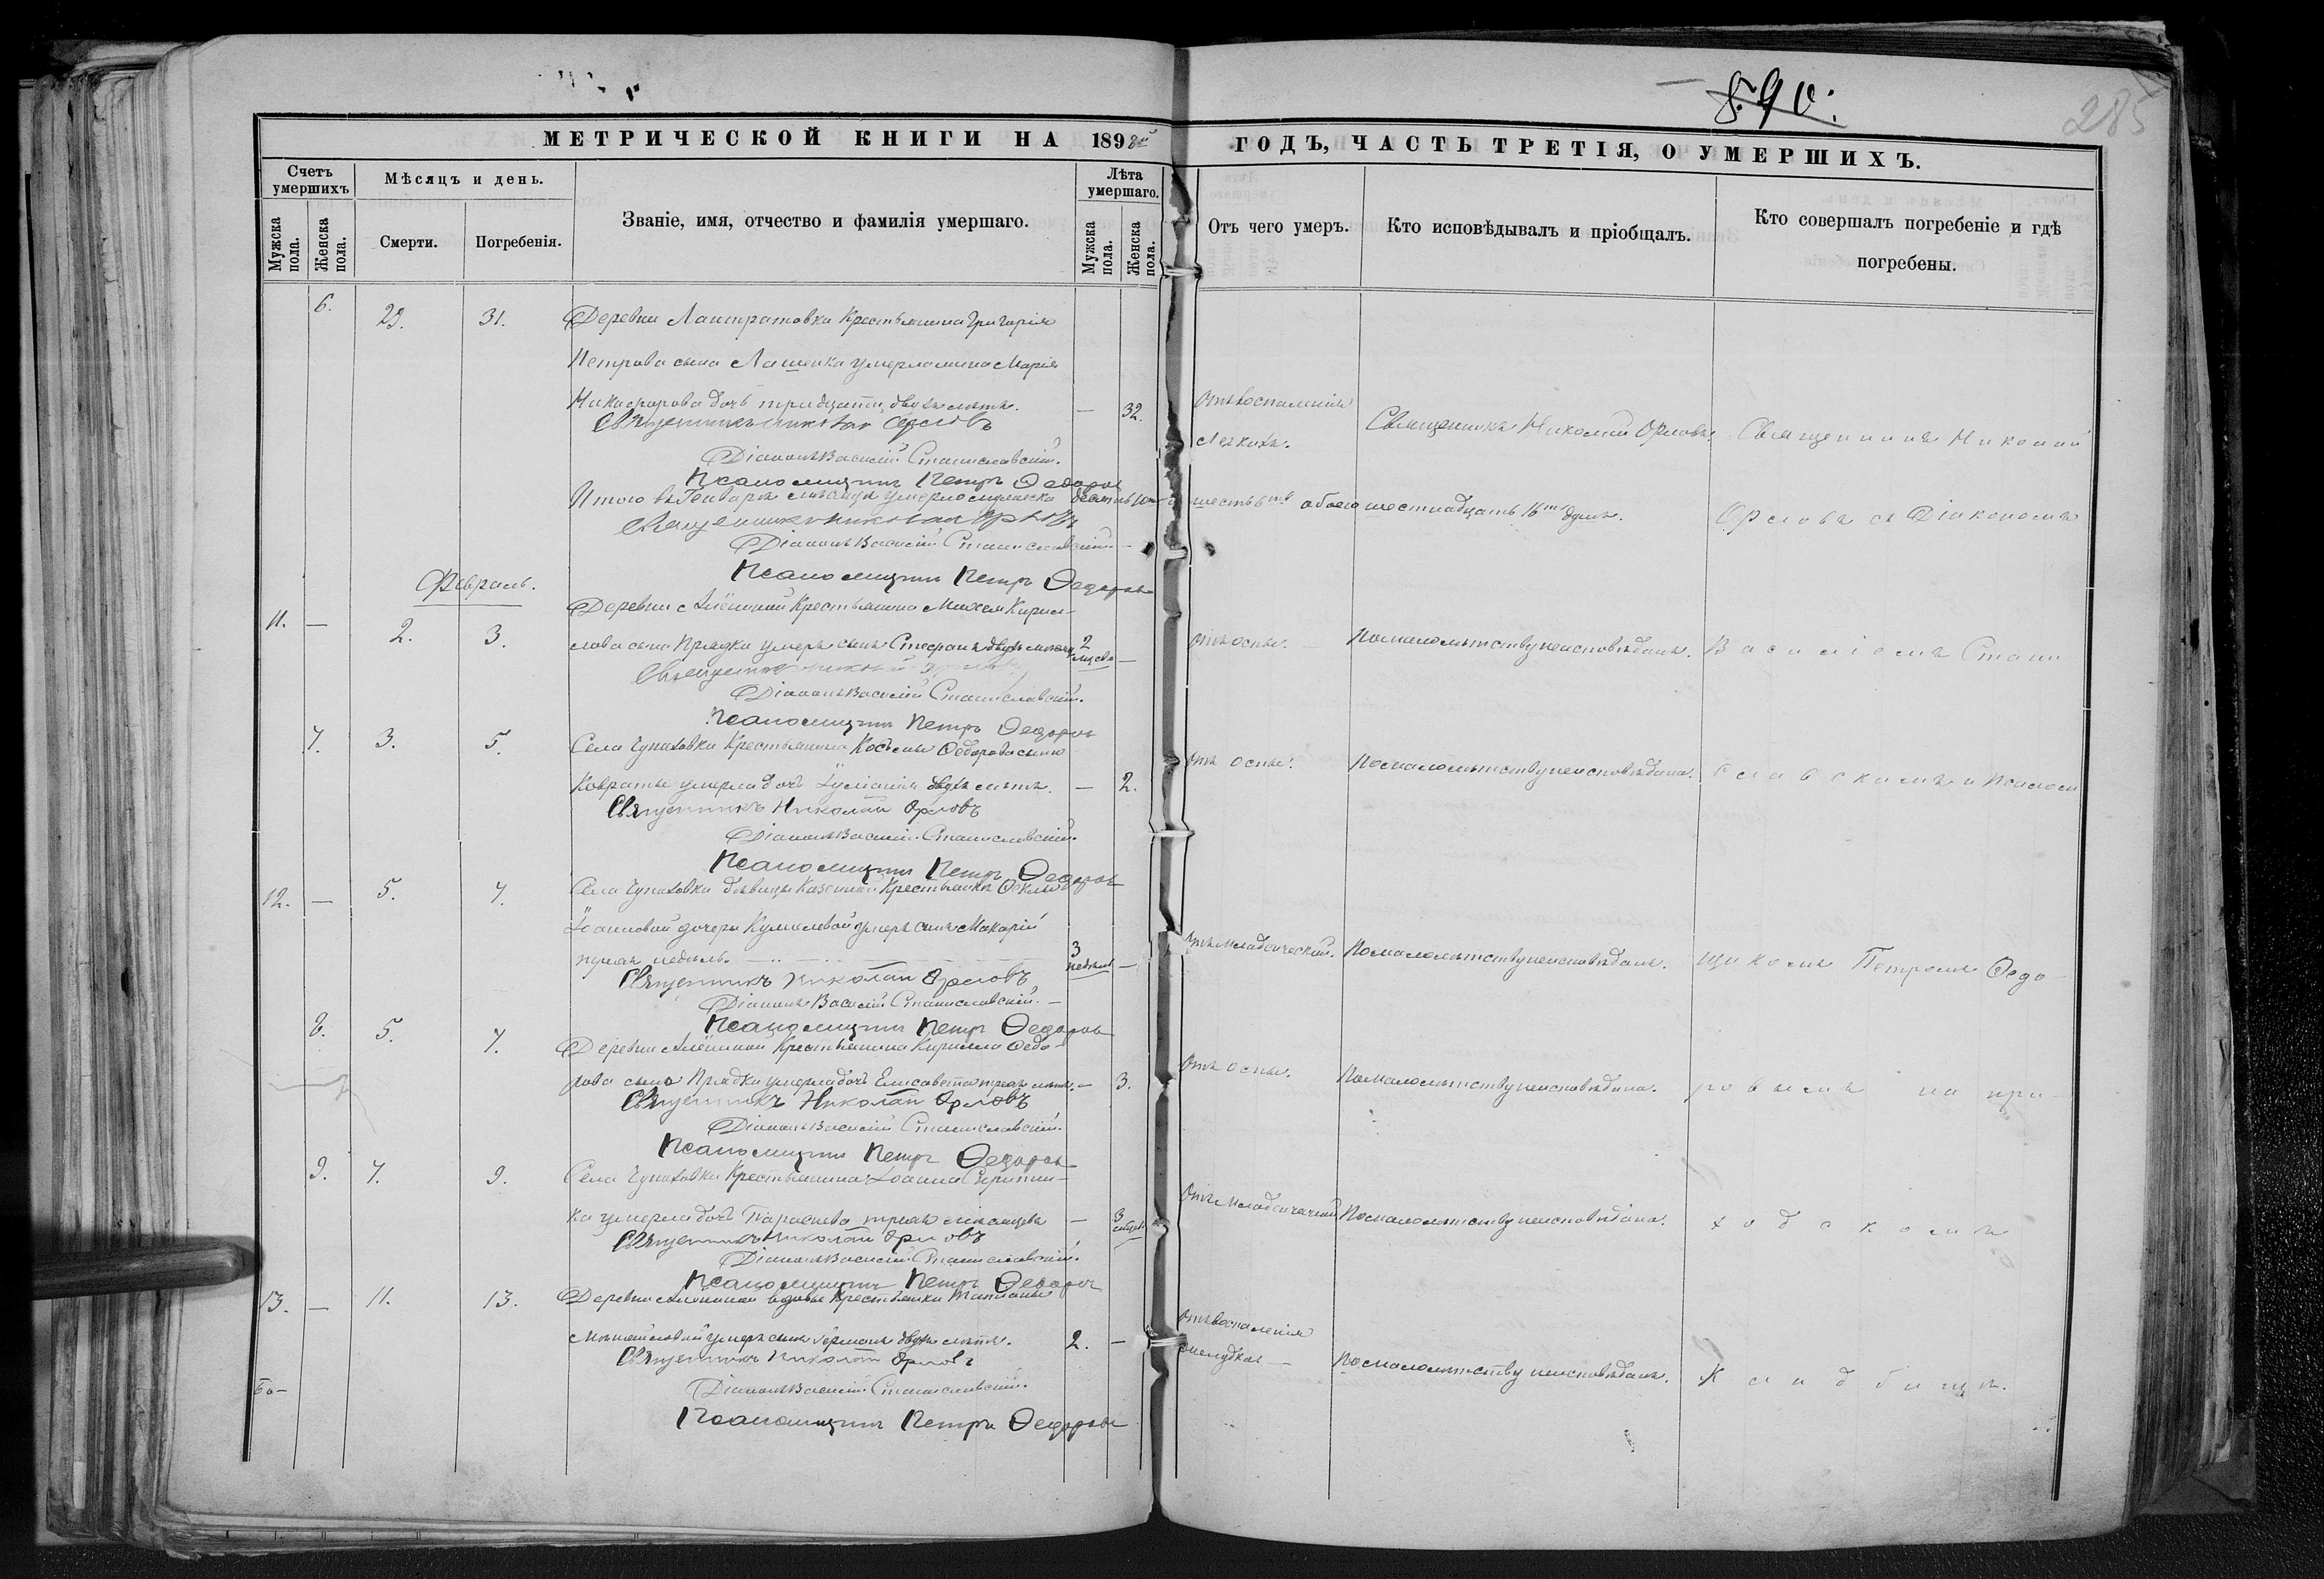 590.
285
МЕТРИЧЕСКОЙ КНИГИ НА 1898й ГОДЪ, ЧАСТЬ ТРЕТІЯ, О УМЕРШИХЪ.
Счетъ умершихъ
Мѣсяцъ и день.
Званіе, имя, отчество и фамилія умершаго.
Лѣта умершаго.
Отъ чего умеръ.
Кто исповѣдывалъ и пріобщалъ.
Кто совершалъ погребеніе и гдѣ погребены.
Мужска пола.
Женска пола.
Смерти.
Погребенія.
Мужска пола.
Женска пола.
6. 29. 31. Деревни Крестьянина Григорія
Петрова сына умерла жена Марія
Никифорова дочь тридцати двухъ лѣтъ. — 32. Отъ воспаленія
легкихъ. Священникъ Николай Орловъ. Священникъ Николай
Священникъ Николай Орловъ
Діаконъ Василій Станиславскій.
Псаломщикъ Петръ Ѳедоровъ
Итого въ Генварѣ мѣсяцѣ умерло мужеска десять 10 шесть 6 обоего шестнадцать 16 душъ.
Орловъ съ Діакономъ
Священникъ Николай Орловъ
Діаконъ Василій Станиславскій.
Псаломщикъ Петръ Ѳедоровъ
Февраль.
11. — 2. 3. Деревни Крестьянина Кирил-
лова сына Прядки умеръ сынъ Стефанъ двухъ 2 — Отъ оспы. По малолѣтству неисповѣданъ. Василіемъ Стани
Священникъ Николай Орловъ
Діаконъ Василій Станиславскій.
Псаломщикъ Петръ Ѳедоровъ
7. 3. 5. Села Чупаховки Крестьянина Косьмы Ѳедорова сына
умерла дочь Іуліанія двухъ лѣтъ. — 2. Отъ оспы. По малолѣтству неисповѣдана. славскимъ и Псалом
Священникъ Николай Орловъ
Діаконъ Василій Станиславскій.
Псаломщикъ Петръ Ѳедоровъ
12. — 5. 7. Села Чупаховки дѣвицы Казенной Крестьянки Ѳеклы
Іоанновой дочери умеръ сынъ Макарій
трехъ недѣль. 3 недѣль — Отъ младенческой. По малолѣтству неисповѣданъ. щикомъ Петромъ Ѳедо
Священникъ Николай Орловъ
Діаконъ Василій Станиславскій.
Псаломщикъ Петръ Ѳедоровъ
8. 5. 7. Деревни Крестьянина Кирилла Ѳедо-
рова сына Прядки умерла дочь Елисавета трехъ лѣтъ. — 3. Отъ оспы. По малолѣтству неисповѣдана. ровымъ на при-
Священникъ Николай Орловъ
Діаконъ Василій Станиславскій.
Псаломщикъ Петръ Ѳедоровъ
9. 7. 9. Села Чупаховки Крестьянина Іоанна
ка умерла дочь Параскева трехъ мѣсяцевъ — 3 Отъ младенческой По малолѣтству неисповѣдана. ходскомъ
Священникъ Николай Орловъ
Діаконъ Василій Станиславскій.
Псаломщикъ Петръ Ѳедоровъ
13. — 11. 13. Деревни вдовы Крестьянки Татіаны
умеръ сынъ Германъ двухъ лѣтъ. 2. — Отъ воспаленія
желудка — По малолѣтству неисповѣданъ. Кладбищѣ.
Священникъ Николай Орловъ
Діаконъ Василій Станиславскій.
Псаломщикъ Петръ Ѳедоровъ